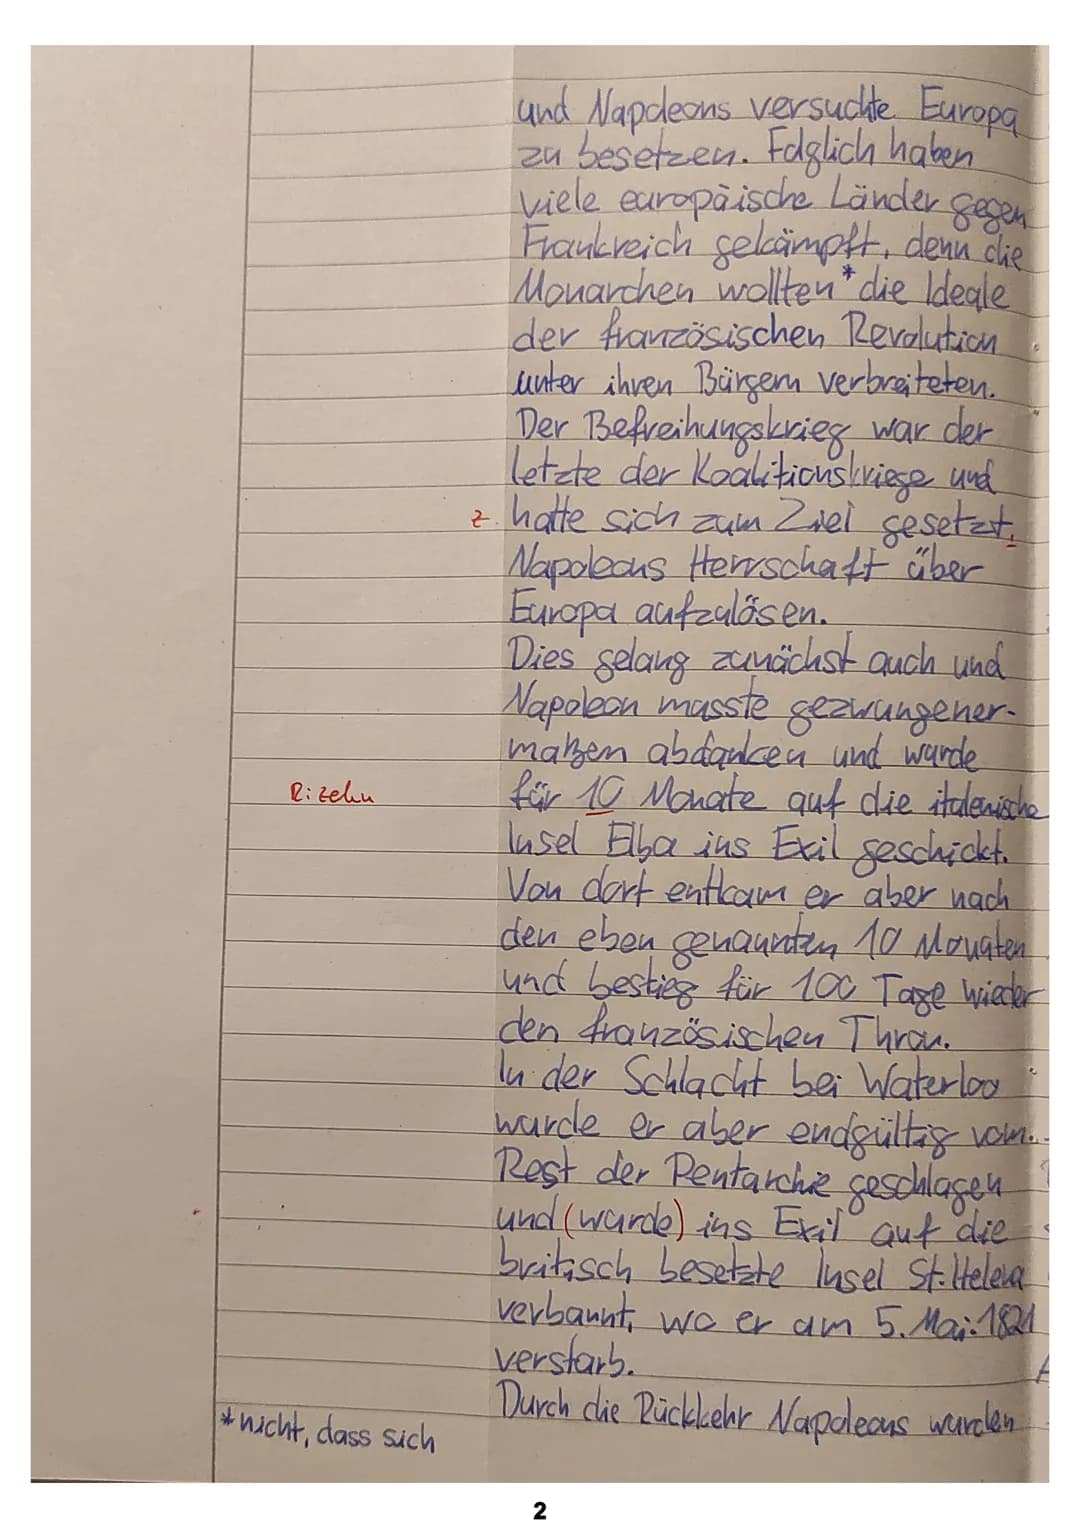 und Napoleons versuchte Europa
zu besetzen. Folglich haben
viele europäische Länder gegen
Frankreich gekämpft, denn die
Monarchen wollten * die Ideale
der französischen Revolution
unter ihren Bürgern verbreiteten.
Der Befreihungskrieg war der
letzte der Koalitionskriege und
z. hatte sich zum Ziel gesetzt,
Napoleons Herrschaft über
Europa aufzulösen.
Dies gelang zunächst auch und
Napoleon musste gezwungener-
maßen abdanken und wurde
R: zehn für 10 Monate auf die italenische
Insel Elba ins Exil geschickt.
Von dort entkam er aber nach
den eben genannten 10 Monaten
und bestieg für 100 Tage wieder
den französischen Thron.
In der Schlacht bei Waterloo
wurde er aber endgültig vom
Rest der Pentarchie geschlagen
und (wurde) ins Exil auf die
britisch besetzte Insel St. Helena
verbannt, wo er am 5. Mai 1821
verstarb.
Durch die Rückkehr Napoleons wurden
* nicht, dass sich
2